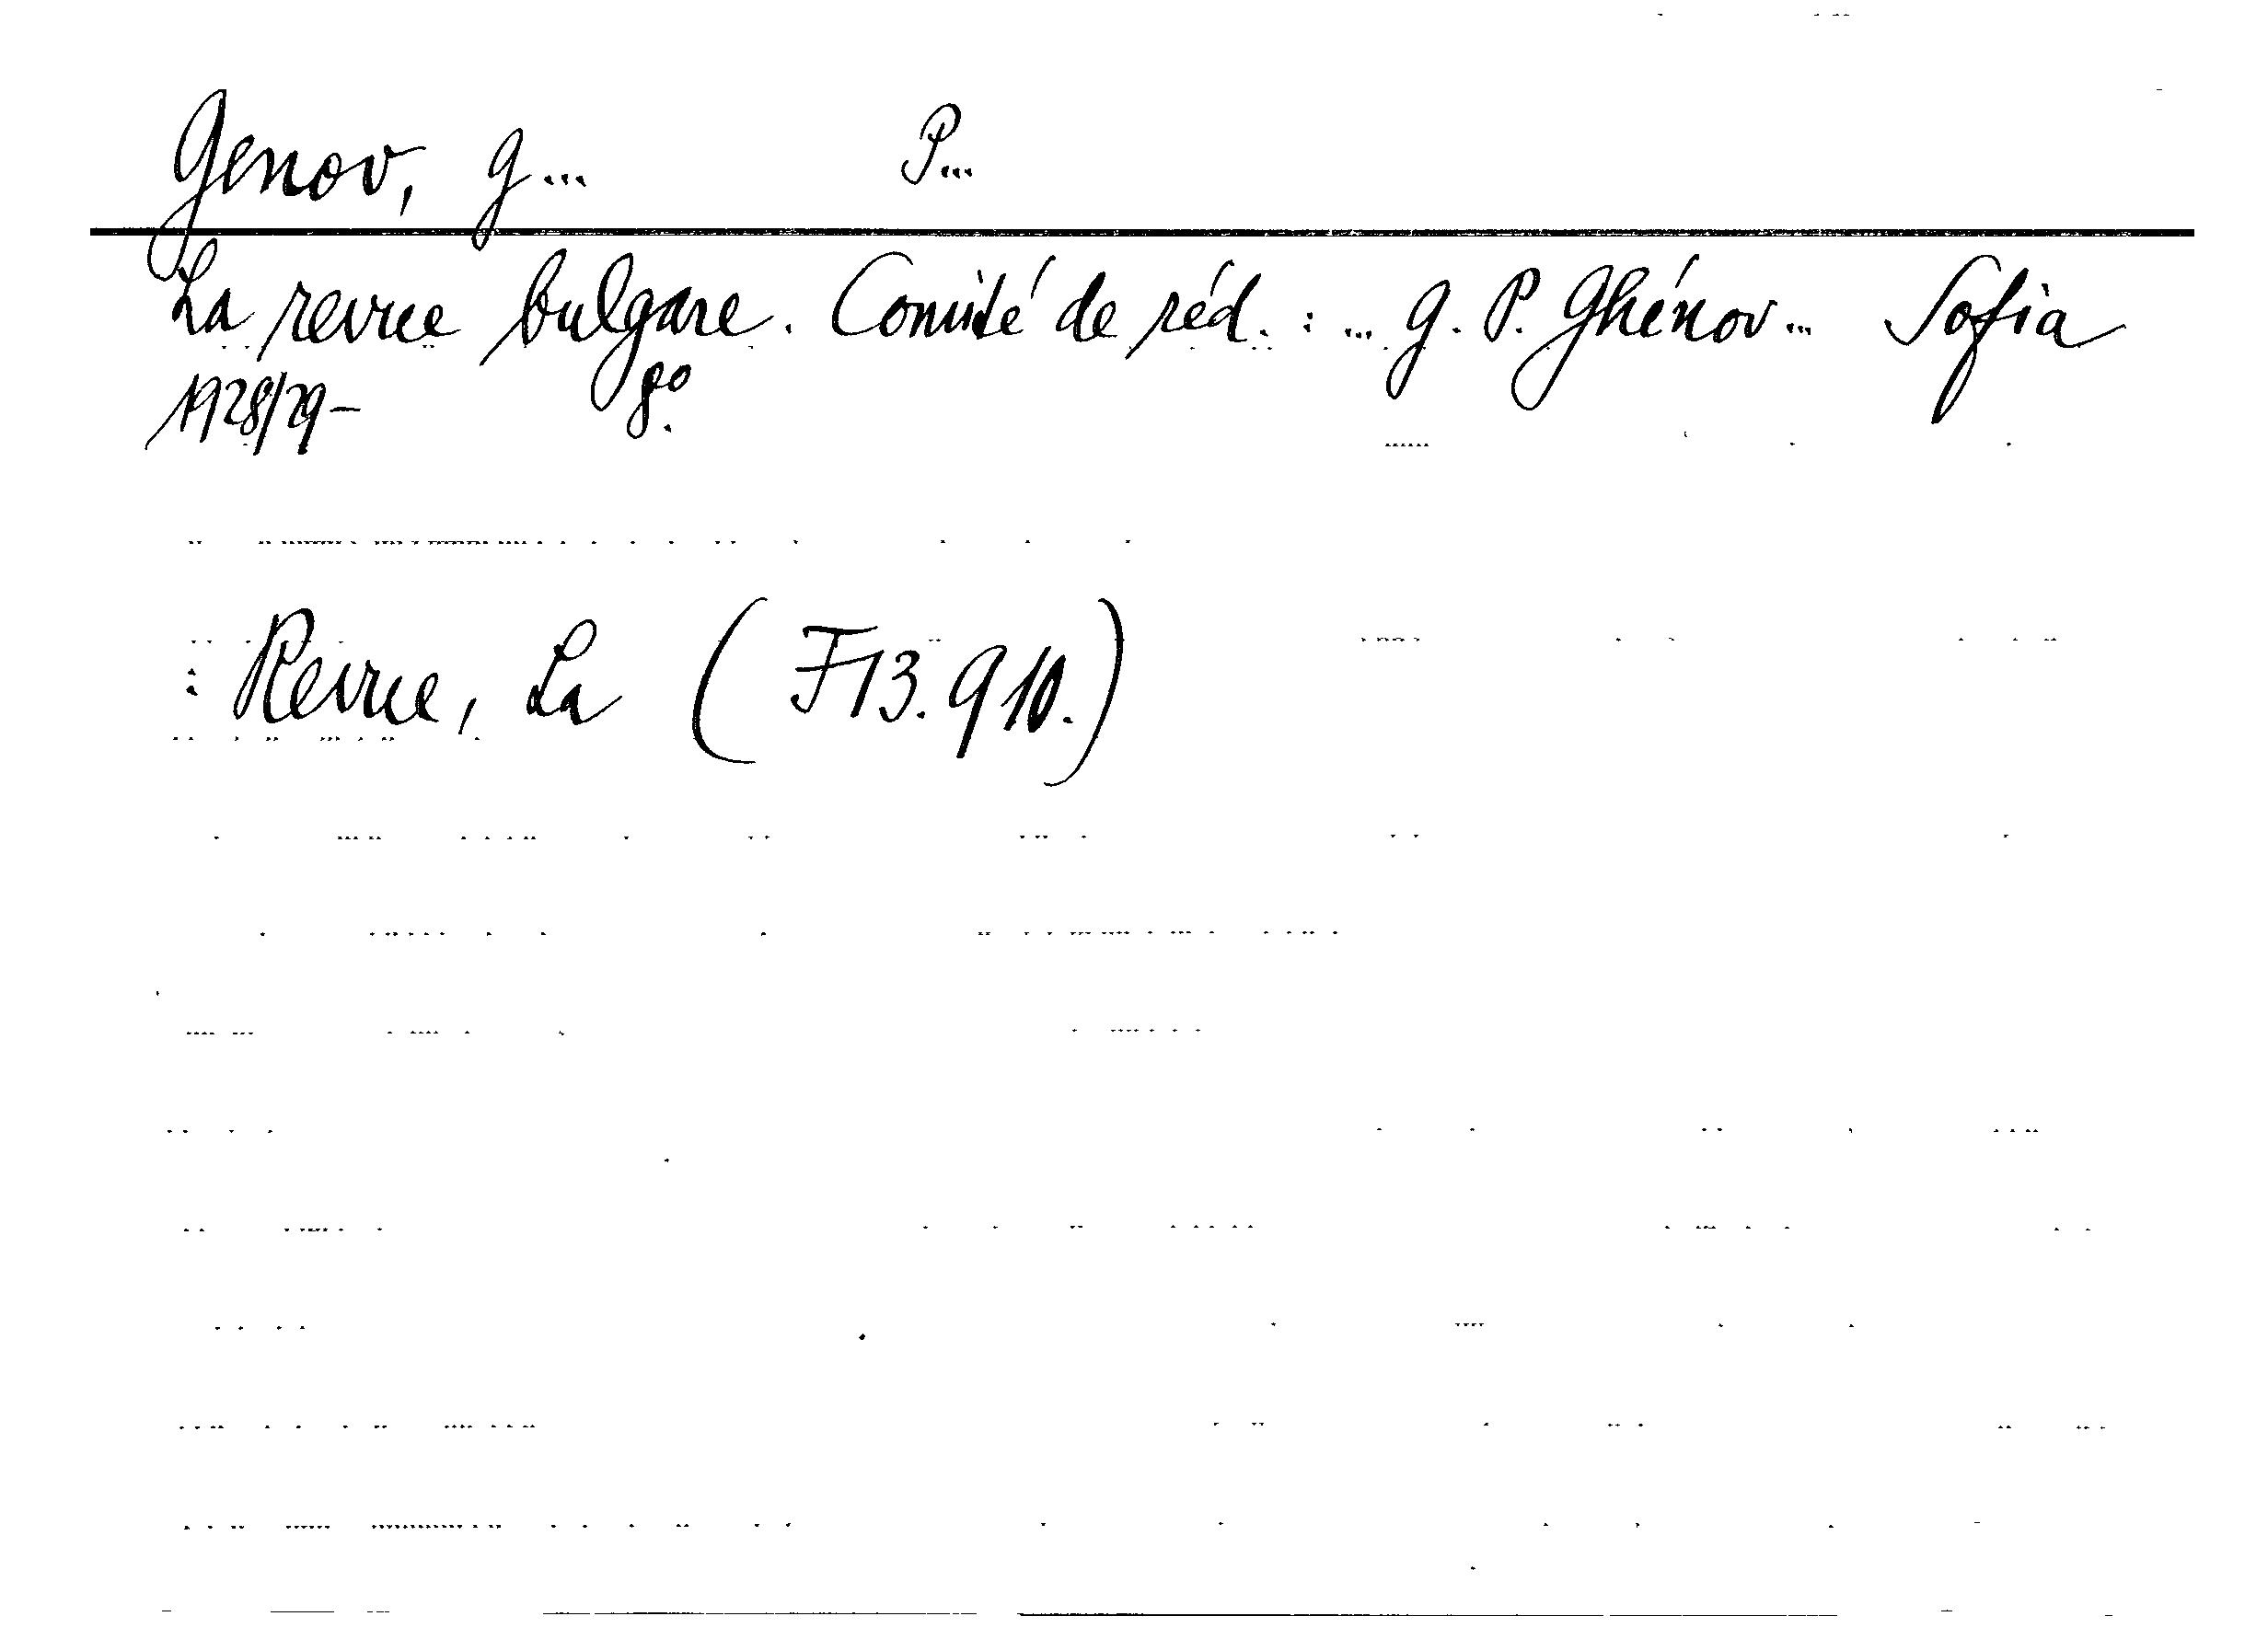 Genov, G... P...
La revue bulgare. Comité de réd. : ... G. P. Ghénov... Sofia
1928/29- 8°.
: Revue, La (F13.910.)